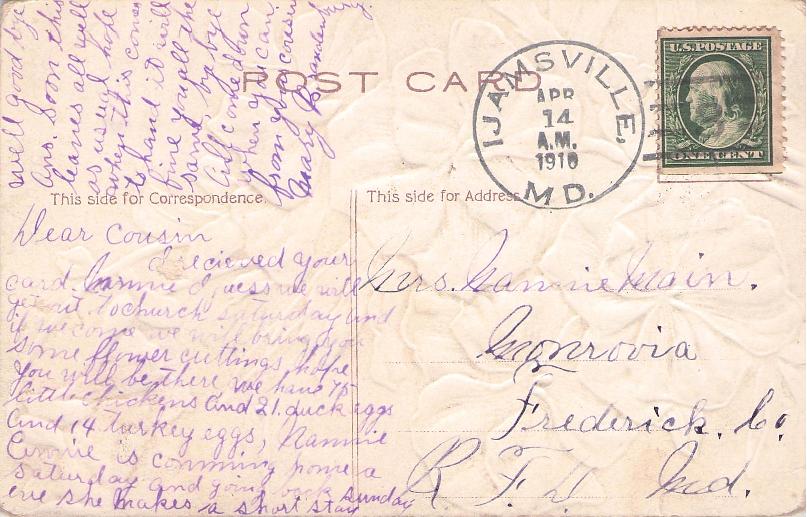 POST CARD
U.S. POSTAGE
ONE CENT
IJAMSVILLE,
APR
14
A.M.
1910
MD.
This side for Correspondence
This side for Address
Dear Cousin
I recieved your
card. Nannie I guess we will
get out to church Saturday and
if we come we will bring you
some flower cuttings hope
you will be there we have 75
little chickens and 21 duck eggs
and 14 turkey eggs, Nannie
Annie is comming home a
Saturday and going back Sunday
eve she makes a short stay
well good bye
ans. soon this
leaves all well
as usual hope
when this comes
to hand it will
fine you all the
same, by bye
all come down
when you can
from you cousin
Mary
Mrs. Nannie Main.
Monrovia
Frederick. Co.
R. F. D. Md.